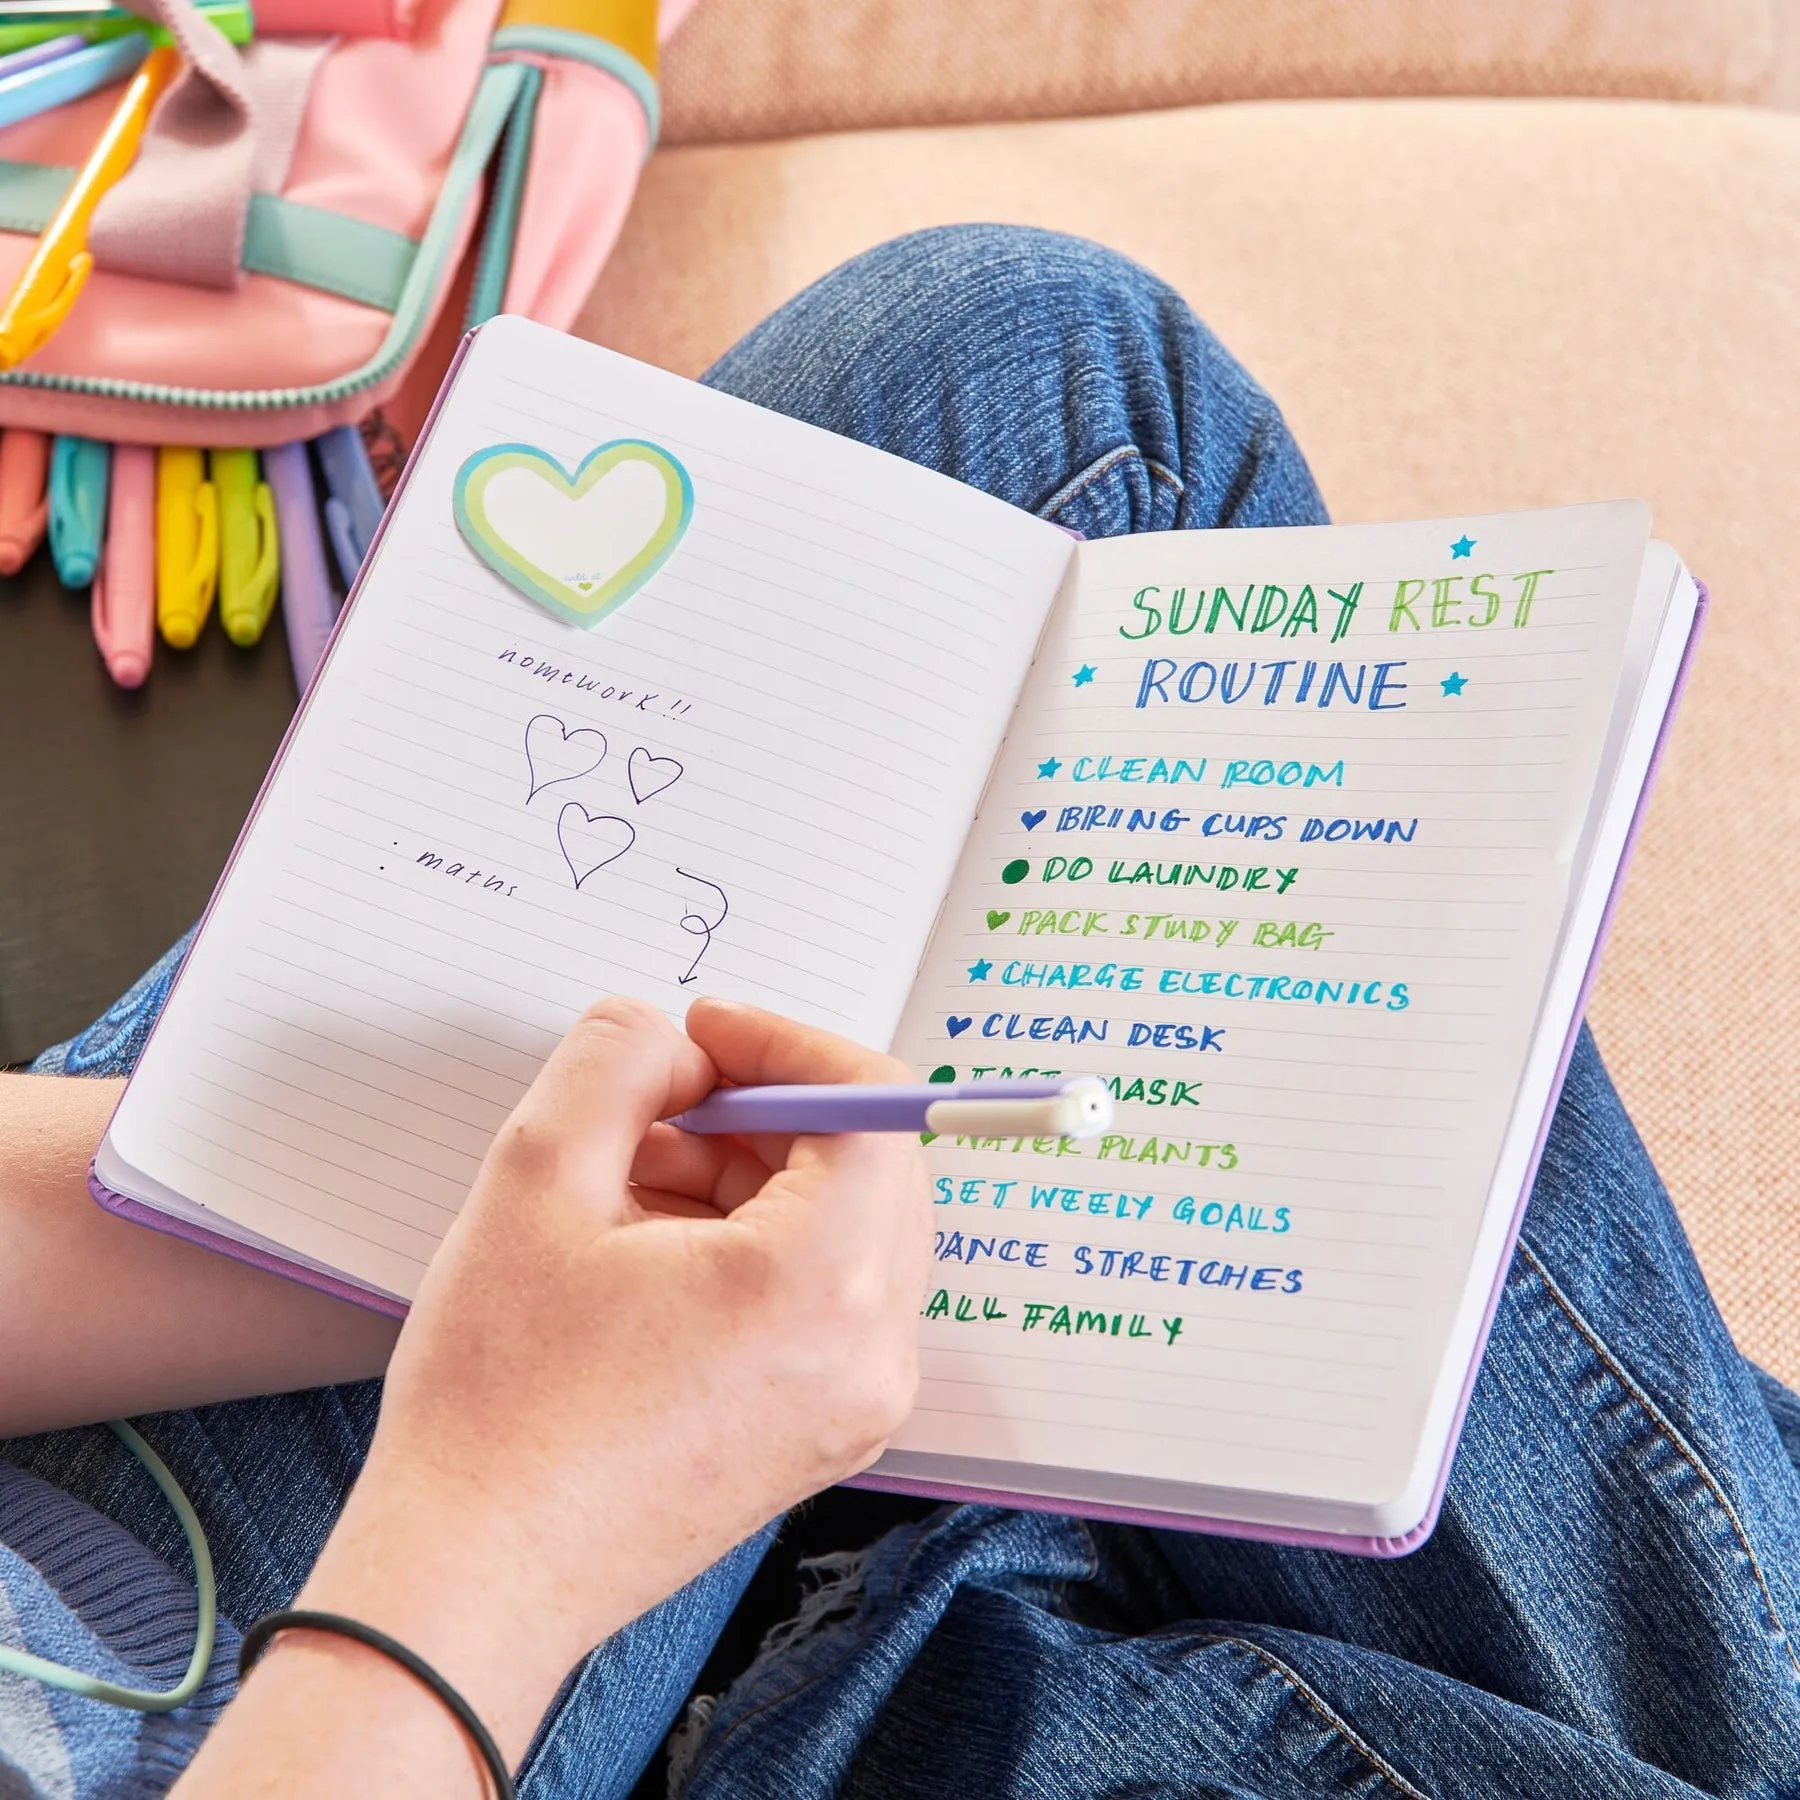 homework!!
: maths
SUNDAY REST
ROUTINE
CLEAN ROOM
BRING CUPS DOWN
DO LAUNDRY
PACK STUDY BAG
CHARGE ELECTRONICS
CLEAN DESK
FACE MASK
WATER PLANTS
SET WEELY GOALS
DANCE STRETCHES
CALL FAMILY